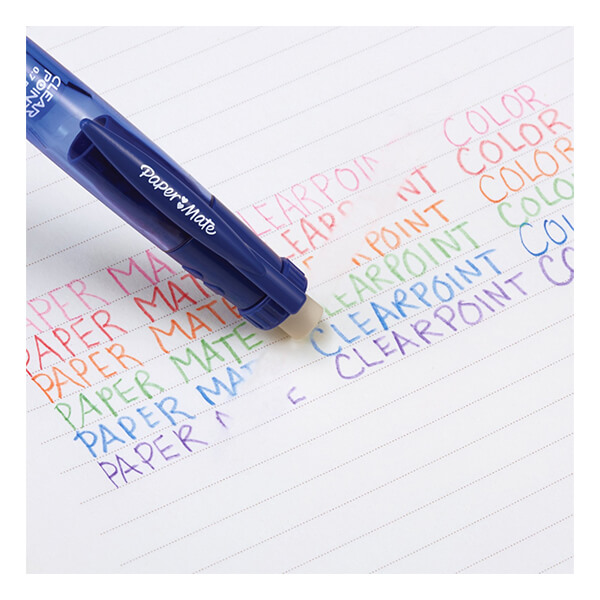 CLEAR
POINT
0.7
Paper Mate
APER MA LEARPOINT COLOR
PAPER MATE CLEARP COLOR
PAPER MATE EARPOINT COLOR
PAPER MATE CLEARPOINT COLO
PAPER MAT CLEARPOINT COL
PAPER CLEARPOINT CO